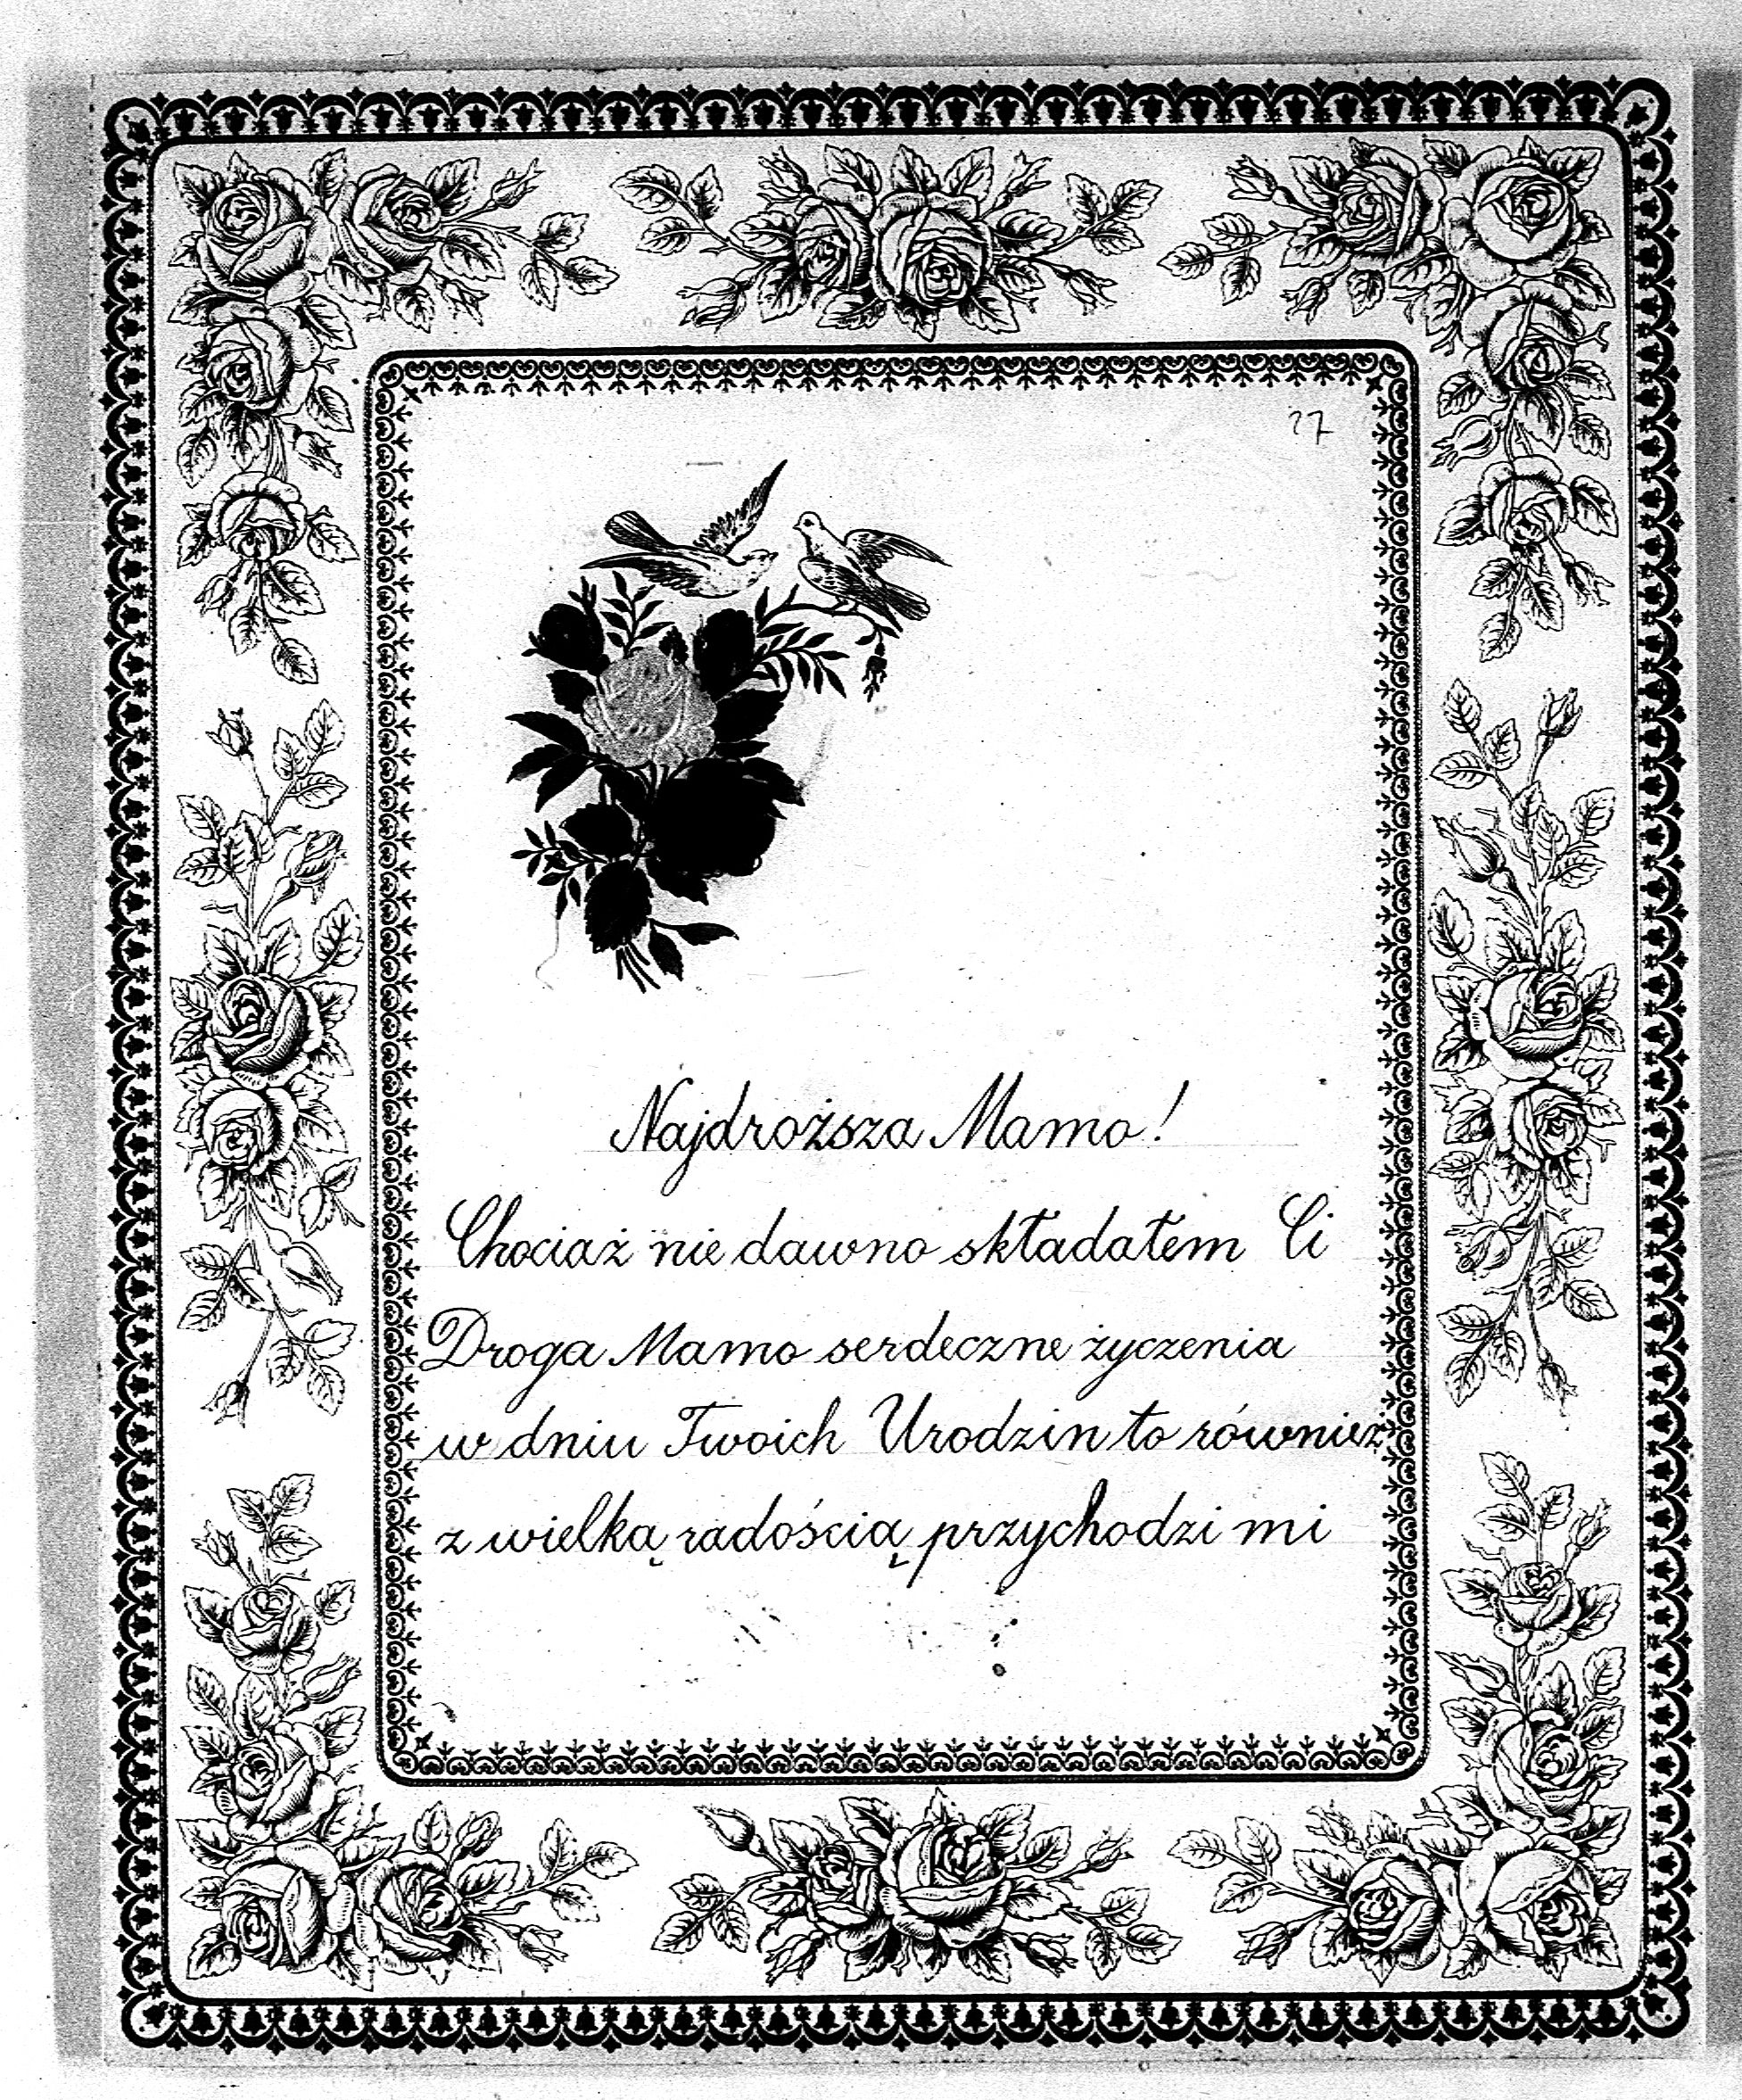 27
Najdroższa Mamo!
Chociaż nie dawno składałem Ci
Droga Mamo serdeczne życzenia
w dniu Twoich Urodzin to również
z wielką radością przychodzi mi